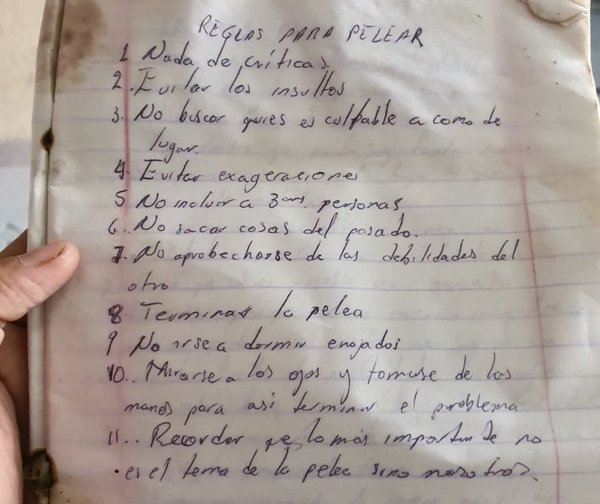 REGLAS PARA PELEAR
1 Nada de críticas.
2. Evitar los insultos
3. No buscar quies es culpable a como de
lugar.
4. Evitar exageraciones
5 No incluir a 3ras. personas
6. No sacar cosas del pasado.
7. No aprobecharse de las debilidades del
otro
8 Terminar la pelea
9 No irse a dormir enojados
10.. Mirarse a los ojos y tomarse de las
manos para asi terminar el problema
11.. Recordar qe lo más importante no
es el tema de la pelea sino nosotros.